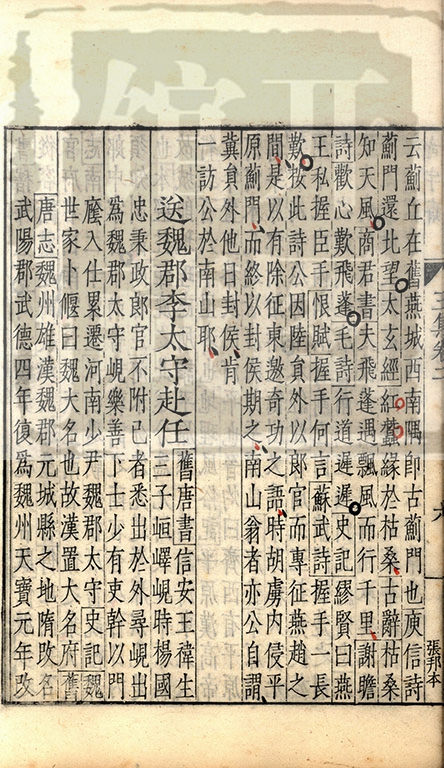 云薊丘在舊燕城西南隅即古薊門也庾信詩
薊門還北望太玄經紅蠶緣於枯桑古辭枯桑
知天風商君書夫飛蓬遇飄風而行千里謝瞻
詩歡心歎飛蓬毛詩行道遲遲史記繆賢曰燕
王私握臣手恨賦握手何言蘇武詩握手一長
歎按此詩公因陸員外以郎官而專征燕趙之
間是以有除征東邀奇功之語時胡虜内侵平
原薊門而終以封侯期之南山翁者亦公自謂
冀員外他日封侯肯
一訪公於南山耶
送魏郡李太守赴任
舊唐書信安王禕生
三子峘嶧峴時楊國
忠秉政郎官不附己者悉出於外尋峴出
爲魏郡太守峴樂善下士少有吏幹以門
廕入仕累遷河南少尹魏郡太守史記魏
世家卜偃曰魏大名也故漢置大名府舊
唐志魏州雄漢魏郡元城縣之地隋改名
武陽郡武德四年復爲魏州天寶元年改
張邦本